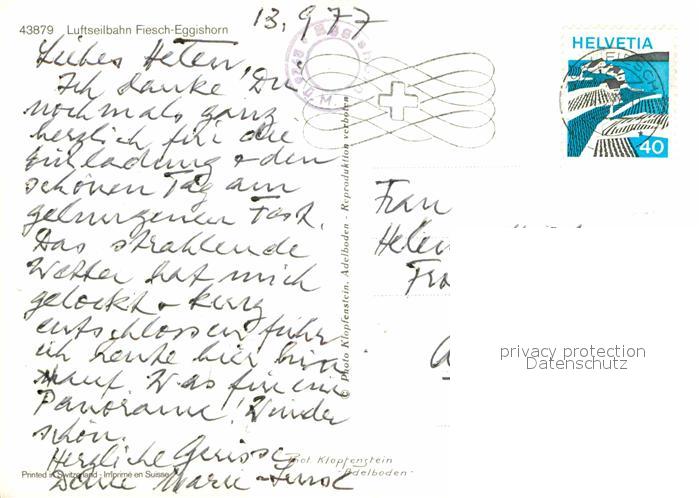 13.9.77
43879 Luftseilbahn Fiesch-Eggishorn
Liebes Helen,
Ich danke Dir
nochmals ganz
herzlich für die
Einladung & den
schönen Tag am
gelungenen Fest.
Das strahlende
Wetter hat mich
gelockt & kurz
entschlossen fuhr
ich heute hier
hinauf. Was für ein
Panorama! Wunder
schön.
Herzliche Grüsse
Deine Marie-
Printed in Switzerland - Imprimé en Suisse
Phot. Klopfenstein
-Adelboden-
© Photo Klopfenstein, Adelboden - Reproduktion verboten
HELVETIA
40
Frau
Helen
privacy protection
Datenschutz